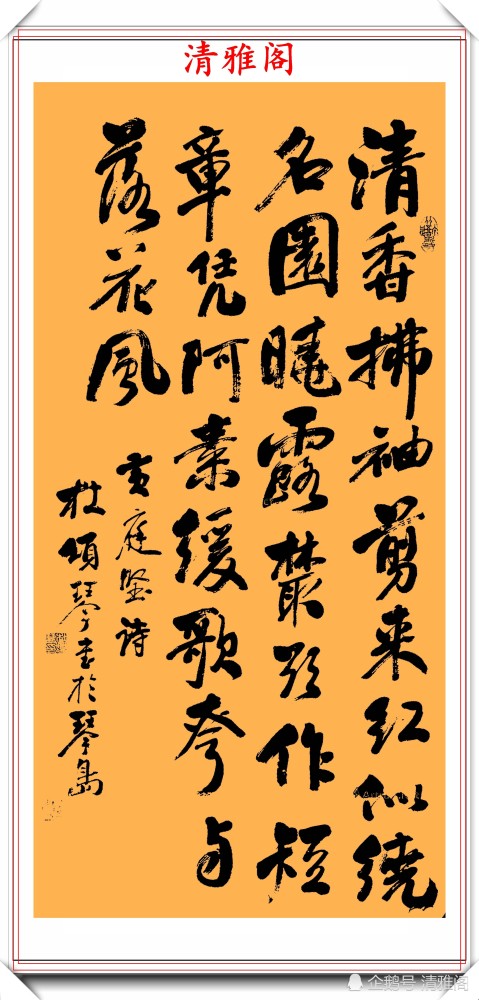 清雅阁
清香拂袖剪来红似绕
名园晓露丛欲作短
章凭阿素缓歌夸与
落花风
黄庭坚诗
杜颂琴书于琴岛
企鹅号 清雅阁